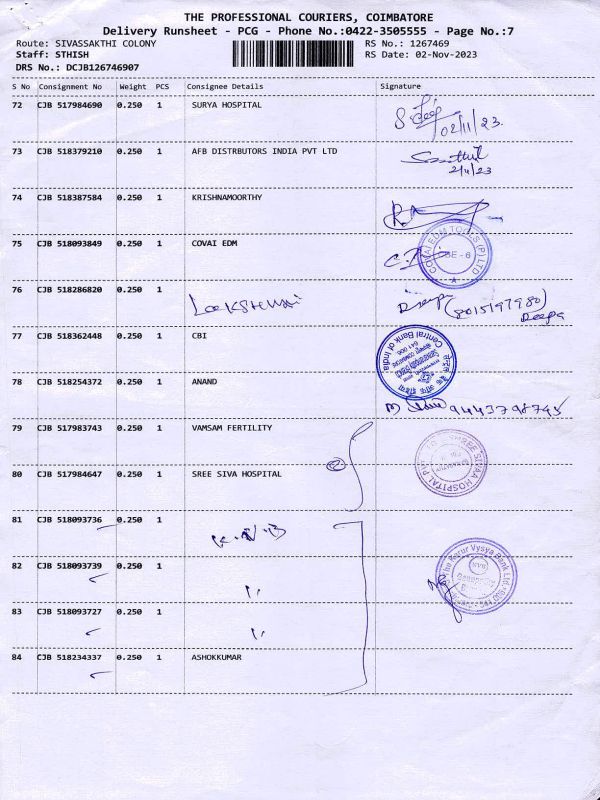 THE PROFESSIONAL COURIERS, COIMBATORE
Delivery Runsheet - PCG - Phone No.:0422-3505555 - Page No.:7
Route: SIVASSAKTHI COLONY RS No.: 1267469
Staff: STHISH RS Date: 02-Nov-2023
DRS No.: DCJB126746907
S No Consignment No Weight PCS Consignee Details Signature
72 CJB 517984690 0.250 1 SURYA HOSPITAL
02/11/23.
73 CJB 518379210 0.250 1 AFB DISTRBUTORS INDIA PVT LTD
2/11/23
74 CJB 518387584 0.250 1 KRISHNAMOORTHY
75 CJB 518093849 0.250 1 COVAI EDM
COVAI EDM TOOLS (P) LTD
CBE - 6
76 CJB 518286820 0.250 1
Deepa (8015197980)
Deepa
77 CJB 518362448 0.250 1 CBI
Central Bank of India
78 CJB 518254372 0.250 1 ANAND
9443798745
79 CJB 517983743 0.250 1 VAMSAM FERTILITY
2
80 CJB 517984647 0.250 1 SREE SIVA HOSPITAL
81 CJB 518093736 0.250 1
K.V.B
82 CJB 518093739 0.250 1
"
The Karur Vysya Bank Ltd
KVB
83 CJB 518093727 0.250 1
"
84 CJB 518234337 0.250 1 ASHOKKUMAR